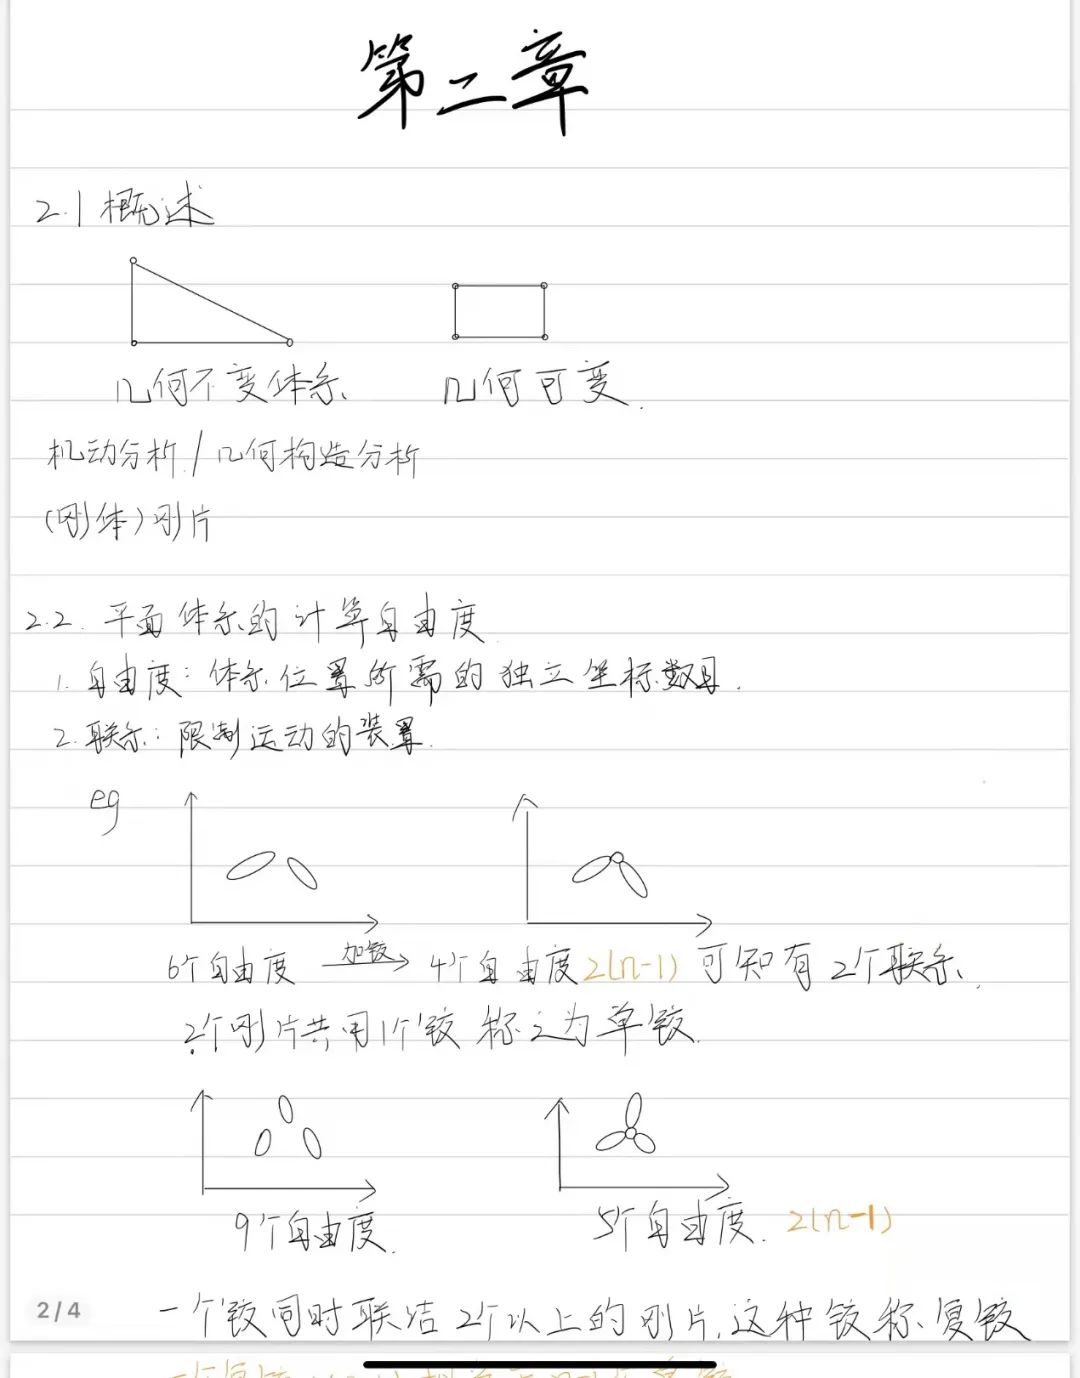 第二章
2.1 概述
几何不变体系 几何可变.
机动分析/几何构造分析
(刚体)刚片
2.2. 平面体系的计算自由度.
1. 自由度: 体系位置所需的独立坐标数目.
2. 联系: 限制运动的装置.
eg
加铰
6个自由度 4个自由度 2(n-1) 可知有2个联系.
2个刚片共用1个铰 称之为单铰.
9个自由度. 5个自由度. 2(n-1)
2/4
一个铰同时联结2个以上的刚片,这种铰称复铰